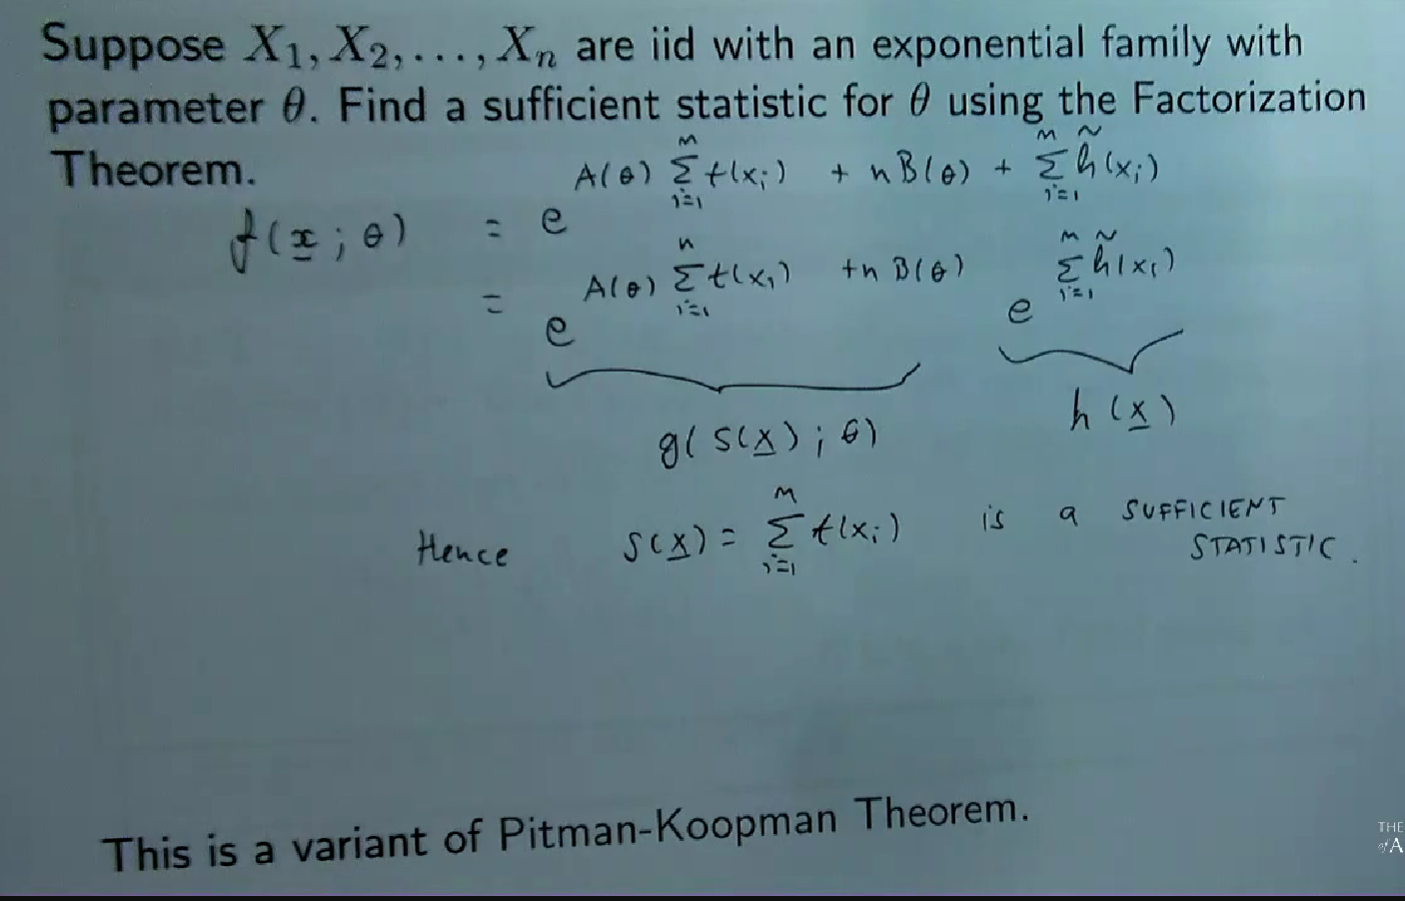 Suppose X₁, X₂, ..., Xₙ are iid with an exponential family with
parameter θ. Find a sufficient statistic for θ using the Factorization
Theorem.
f(x; θ) = e^{A(θ) Σ_{i=1}^{n} t(xᵢ) + nB(θ) + Σ_{i=1}^{n} h̃(xᵢ)}
= e^{A(θ) Σ_{i=1}^{n} t(xᵢ) + nB(θ)} e^{Σ_{i=1}^{n} h̃(xᵢ)}
g(S(x); θ) h(x)
Hence S(x) = Σ_{i=1}^{n} t(xᵢ) is a SUFFICIENT
STATISTIC.
This is a variant of Pitman-Koopman Theorem.
THE
of A